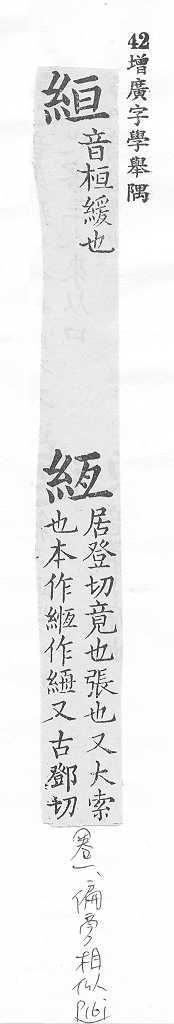 42增廣字學舉隅
絙
音桓緩也
縆
居登切竟也張也又大索
也本作緪作縆又古鄧切
卷一、偏旁相似
P161